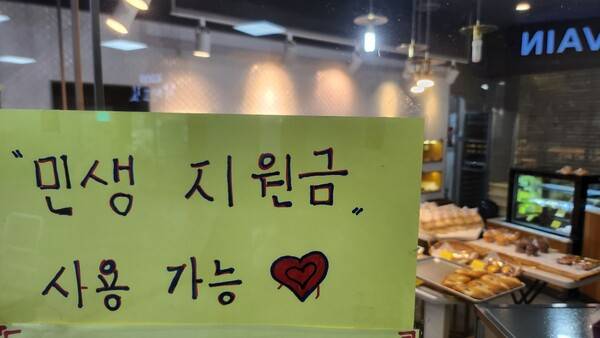 "민생 지원금"
사용 가능